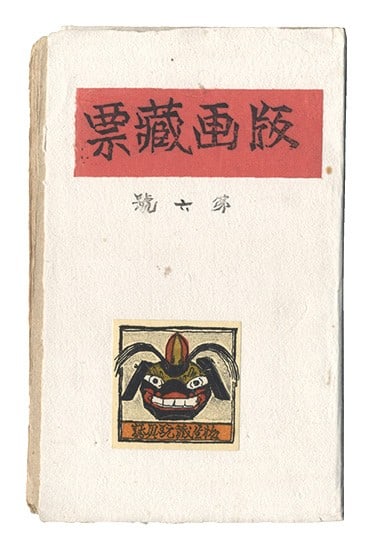 版画藏票
第六號